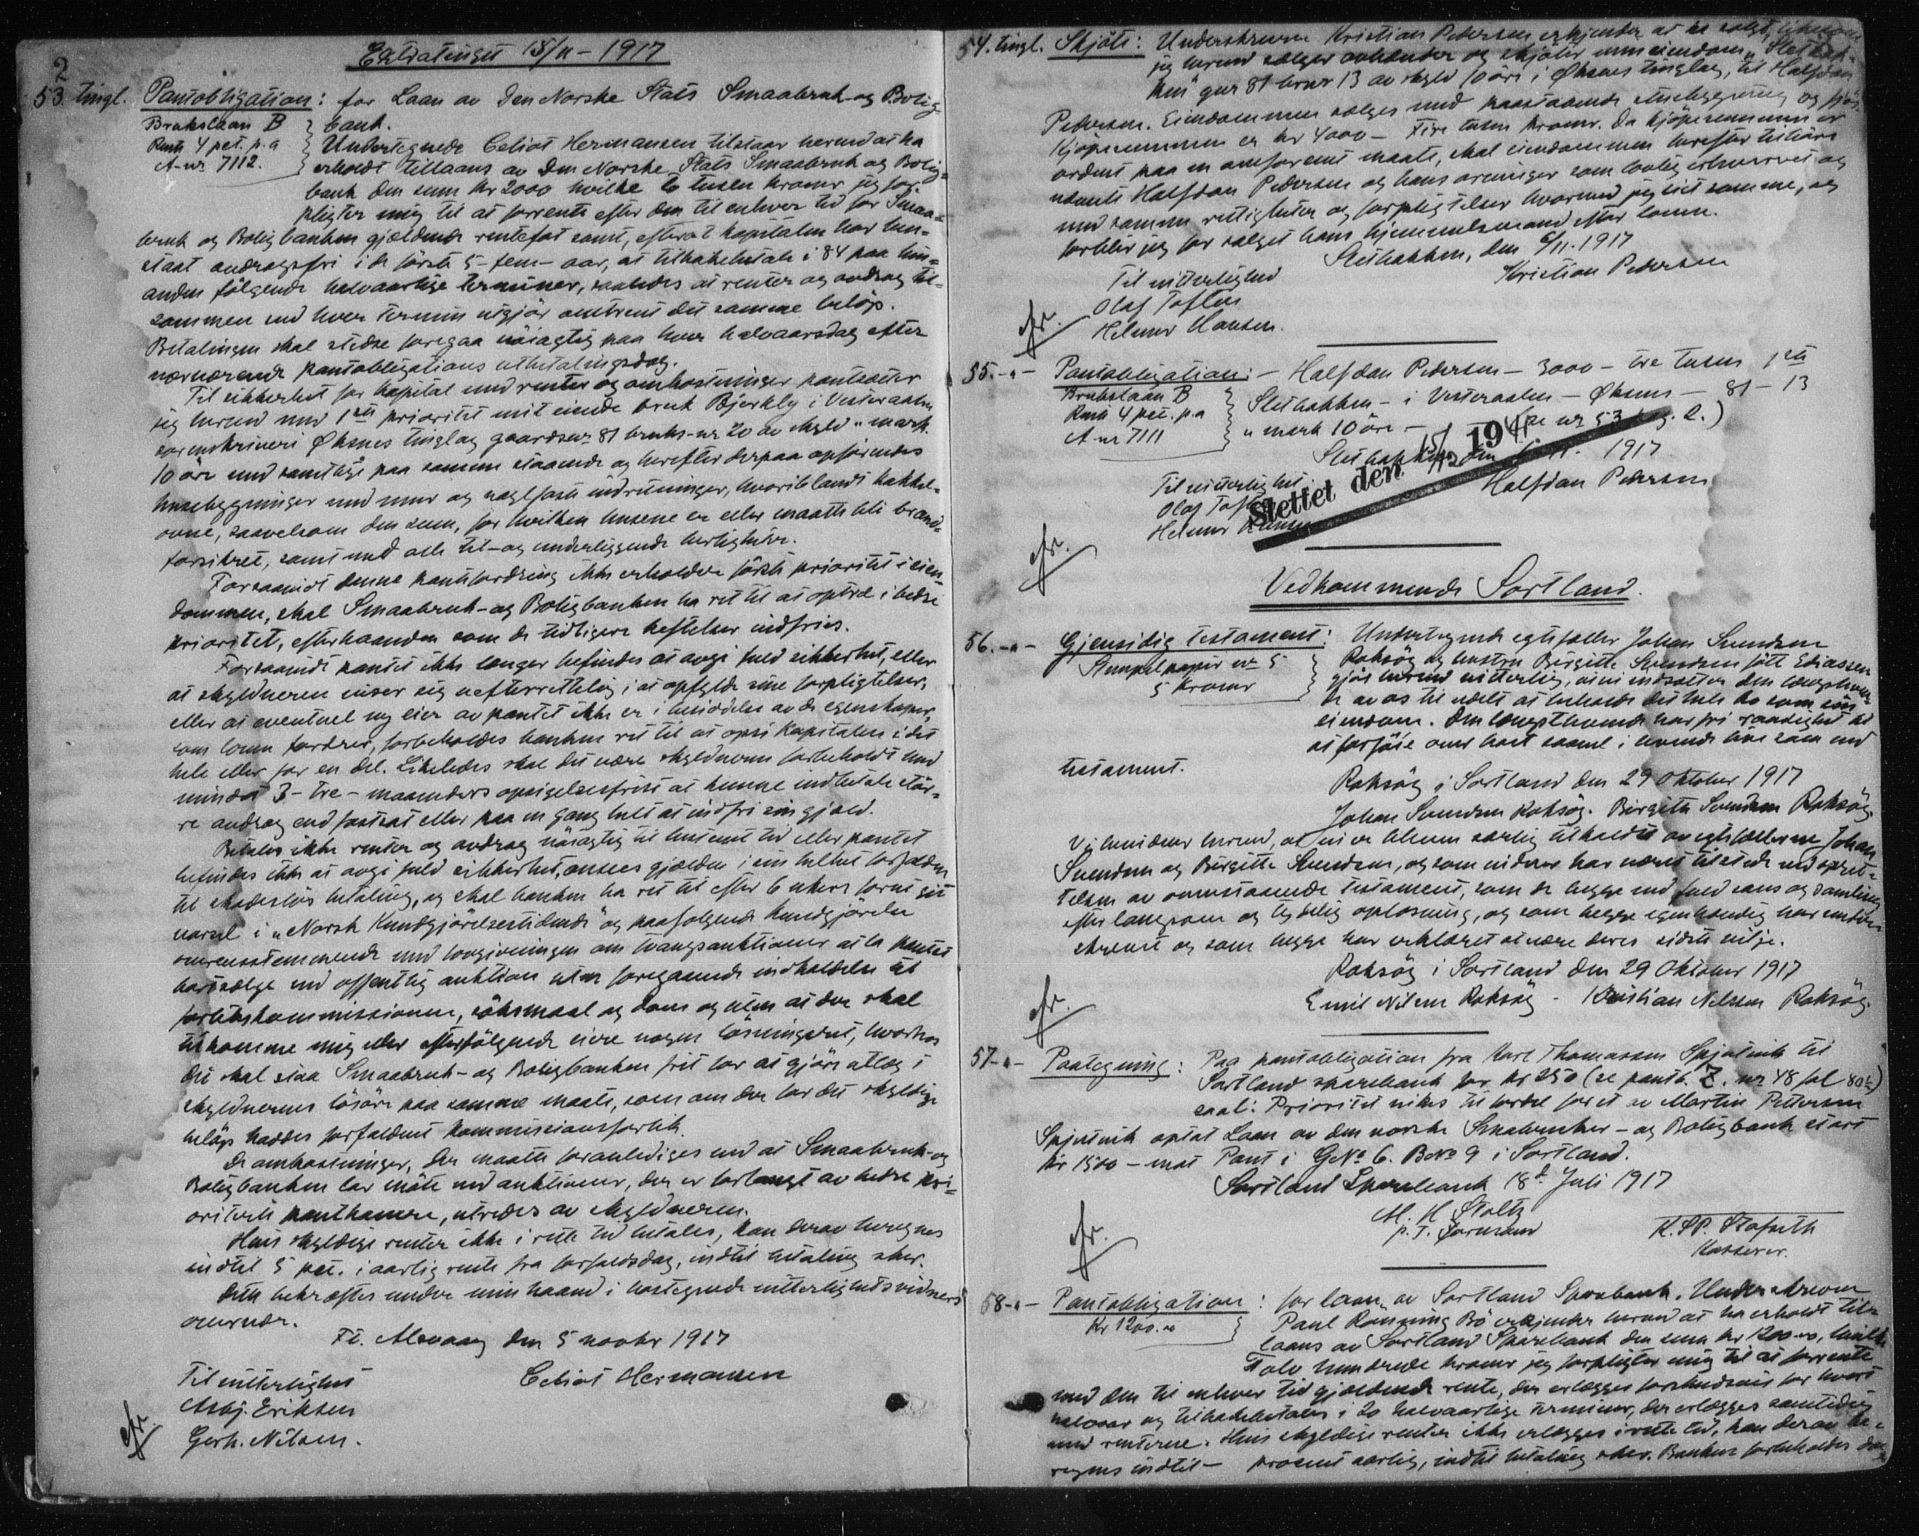 2
Extratinget 15/11 - 1917
53. tingl. Pantobligation: for Laan av Den Norske Stats Smaabruk- og Bolig-
Brukslaan B
Rente 4 pct. p.a
A-nr 7112.
bank.
Undertegnede Celiot Hermansen tilstaar herved at ha
erholdt tillaans av Den Norske Stats Smaabruk og Bolig-
bank den sum kr 2000 hvilke to tusen kroner jeg for-
pligter mig til at forrente efter den til enhver tid for Smaa-
bruk og Boligbanken gjældende rentefot samt, efterat kapitalen har hen-
staat avdragsfri i de første 5 - fem - aar, at tilbakebetale i 84 paa hin-
anden følgende halvaarlige terminer, saaledes at renter og avdrag til-
sammen ved hver termin utgjør omtrent det samme beløp.
Betalingen skal stedse foregaa nöiagtig paa hver halvaarsdag efter
nærværende pantobligations utbetalingsdag.
Til sikkerhet for kapital med renter og omkostninger pantsætter
jeg herved med 1ste prioritet mit eiende bruk Bjerkly i Vesteraalen
sorenskriveri Øksnes tinglag gaardsnr 81 bruks-nr 20 av skyld " mark
10 öre med samtlige paa samme staaende og herefter derpaa opförendes
husebygninger med mur og naglfaste indretninger, hvoriblandt kakkel-
ovne, saavelsom den sum, for hvilken husene er eller maatte bli brand-
forsikret, samt med alle til- og underliggende herligheter.
Forsaavidt denne pantfordring ikke erholder første prioritet i eien-
dommen, skal Smaabruk- og Boligbanken ha ret til at optræ i bedre
prioritet, efterhaanden som de tidligere heftelser indfries.
Forsaavidt pantet ikke længer befindes at avgi fuld sikkerhet, eller
at skyldneren viser sig uefterrettelig i at opfylde sine forpligtelser,
eller at eventuel ny eier av pantet ikke er i besiddelse av de egenskaper,
som loven fordrer, forbeholdes banken ret til at opsi kapitalen i det
hele eller for en del. Likeledes skal det være skyldneren forbeholdt med
mindst 3 - tre - maaneders opsigelsesfrist at kunne indbetale stör-
re avdrag end fastsat eller paa en gang helt at indfri sin gjæld.
Betales ikke renter og avdrag nöiagtig til bestemt tid eller pantet
befindes ikke at avgi fuld sikkerhet, ansees gjælden i sin helhet forfalden
til skadeslös betaling, og skal banken ha ret til efter 6 ukers forut git
varsel i "Norsk Kundgjörelsestidende" og paafølgende kundgjörelse
overensstemmende med lovgivningen om tvangsauktioner at la pantet
bortsælge ved offentlig auktion uten foregaaende indkaldelse til
forlikskommissionen, söksmaal og dom og uten at der skal
tilkomme mig eller efterfølgende eiere nogen lösningsret, hvorhos
det skal staa Smaabruk- og Boligbanken frit for at gjöre utlæg i
skyldnerens lösöre paa samme maate, som om der for det skyldige
beløp haddes forfaldent kommissionsforlik.
De omkostninger, der maatte foranlediges ved at Smaabruk- og
Boligbanken lar möte ved auktioner, der er forlangt av bedre pri-
oriterte panthavere, utredes av skyldneren.
Hvis skyldige renter ikke i rette tid betales, kan derav beregnes
indtil 5 pct. i aarlig rente fra forfaldsdag, indtil betaling sker.
Dette bekræftes under min haand i hostegnede vitterlighetsvidners
overvær.
Alsvaag den 5 novbr 1917
Til vitterlighet
Celiot Hermansen
Asbj. Eriksen
Gerh. Nilsen.
54. tingl. Skjöte: Underskrevne Kristian Pedersen erkjender at ha solgt, likesom
jeg herved sælger avhænder og skjöter min eiendom "Sletbak-
ken" gnr 81 brnr 13 av skyld 10 öre i Øksnes tinglag, til Halfdan
Pedersen. Eiendommen sælges med paastaaende
Kjøpesummen er kr 4000 - Fire tusen kroner. Da kjöpesummen er
ordent paa en omforent maate, skal eiendommen herefter tilhöre
nævnte Halfdan Pedersen og hans arvinger som lovlig erhvervet og
med samme rettigheter og forpligtelser hvormed jeg eiet samme, og
forblir jeg for salget hans hjemmelsmand efter loven.
Sletbakken, den 6/11. 1917
Til vitterlighet Kristian Pedersen
Olaf Toften
Helmer Hansen.
55. -"- Pantobligation: - Halfdan Pedersen - 3000 - tre tusen 1ste
Brukslaan B
Rente 4 pct. p.a
A-nr 7111
Sletbakken - i Vesteraalen - Øksnes - 81 - 13
" mark 10 öre - (se nr 53 pag. 2.)
Sletbakken den 6/11. 1917
Til vitterlighet Halfdan Pedersen
Olaf Toften
Helmer Hansen
Slettet den 15/12 194
Vedkommende Sortland.
56. -"- Gjensidig testament: Undertegnede egtefæller Johan Svendsen
Stempelpapir nr 5
5 Kroner
Roksöy og hustru Birgitte Svendsen født Ediassen
gjör herved vitterlig, at vi indsætter den længstleven-
de av os til udelt at beholde det hele bo som sin
eiendom. Den længstlevende har fri raadighet til
at forföie over boet saavel i levende live som ved
testament.
Roksöy i Sortland den 29 oktober 1917
Johan Svendsen Roksöy. Birgitte Svendsen Roksöy.
Vi bevidner herved, at vi er blevne særlig tilkaldt av egtefællerne Johan
Svendsen og Birgitte Svendsen, og som vidner har været tilstede ved opret-
telsen av ovenstaaende testament, som de begge ved fuld sans og samling
efter langsom og tydelig oplæsning, og som begge egenhændig har under-
skrevet og som begge har erklæret at være deres sidste vilje.
Roksöy i Sortland den 29 Oktober 1917
Emil Nilsen Roksöy - Kristian Nilsen Roksöy.
57 -"- Paategning: Paa pantobligation fra Karl Thomassen Spjutvik til
Sortland sparebank for kr 250 (se pantb. Z. nr 48 fol 80)
saal: Prioritet vikes til fordel for et av Martin Pettersen
Spjutvik optat Laan av den norske Smaabruker- og Boligbank stort
kr 1500 - mot Pant i GNo 6. BNo 9 i Sortland.
Sortland Sparebank 18de Juli 1917
M. H. Stolts
p.t. Formand
Kasserer.
58 -"- Pantobligation: for laan av Sortland Sparebank. Underskrevne
Kr 1200.00
Paul Rönning Bö erkjender herved at ha erholdt til-
laans av Sortland Sparebank den sum kr 1200.00, hvilke
Tolv hundrede kroner jeg forpligter mig til at forrente
med den til enhver tid gjældende rente, der erlægges forskudsvis for hvert
halvaar og tilbakebetales i 20 halvaarlige terminer, der erlægges samtidig
med renterne. Hvis skyldige renter ikke erlægges i rette tid, kan derav be-
regnes indtil - procent aarlig, indtil betaling sker. Banken forbeholdes